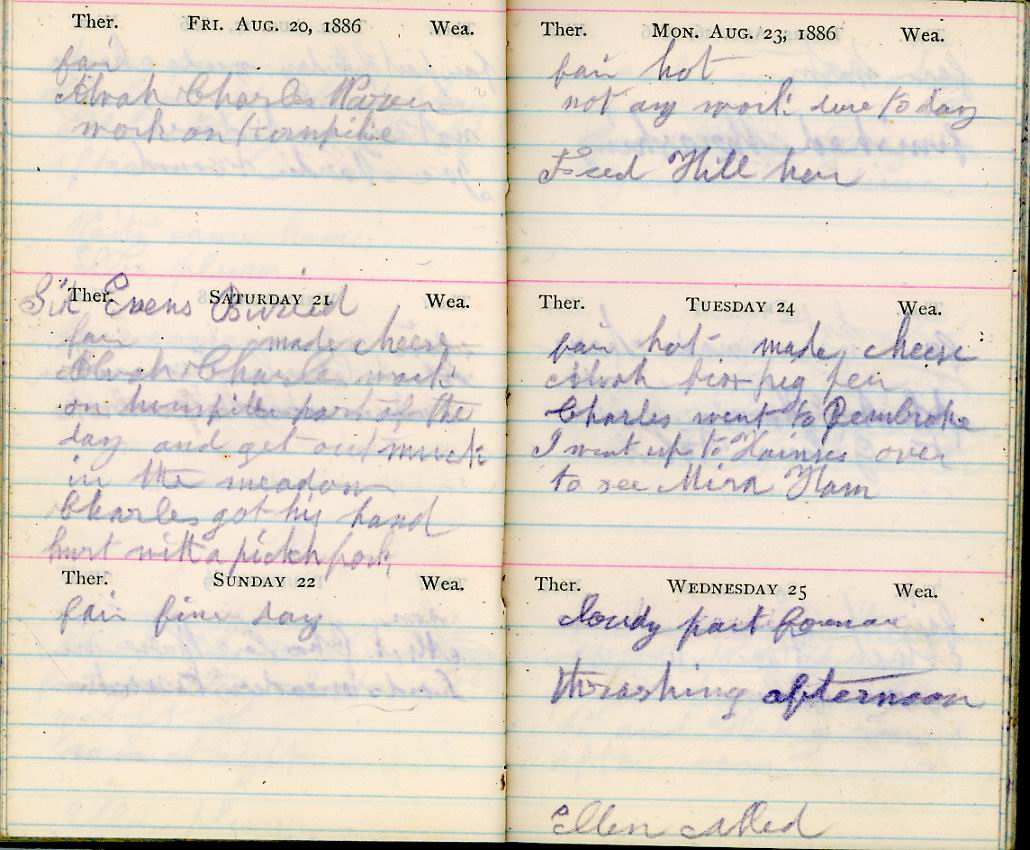 Ther. FRI. AUG. 20, 1886 Wea.
fair
Alvah Charles Warren
work on turnpike
Ther. SATURDAY 21 Wea.
Evens Buried
fair made cheese
Alvah Charles work
on turnpike part of the
day and get out muck
in the meadow
Charles got his hand
hurt with a pitch fork
Ther. SUNDAY 22 Wea.
fair fine day
Ther. MON. AUG. 23, 1886 Wea.
fair hot
not any work done to day
Fred Hill here
Ther. TUESDAY 24 Wea.
fair hot made cheese
Alvah fix pig pen
Charles went to Pembroke
I went up to Haines over
to see Mira Ham
Ther. WEDNESDAY 25 Wea.
Cloudy part
thrashing afternoon
Ellen called